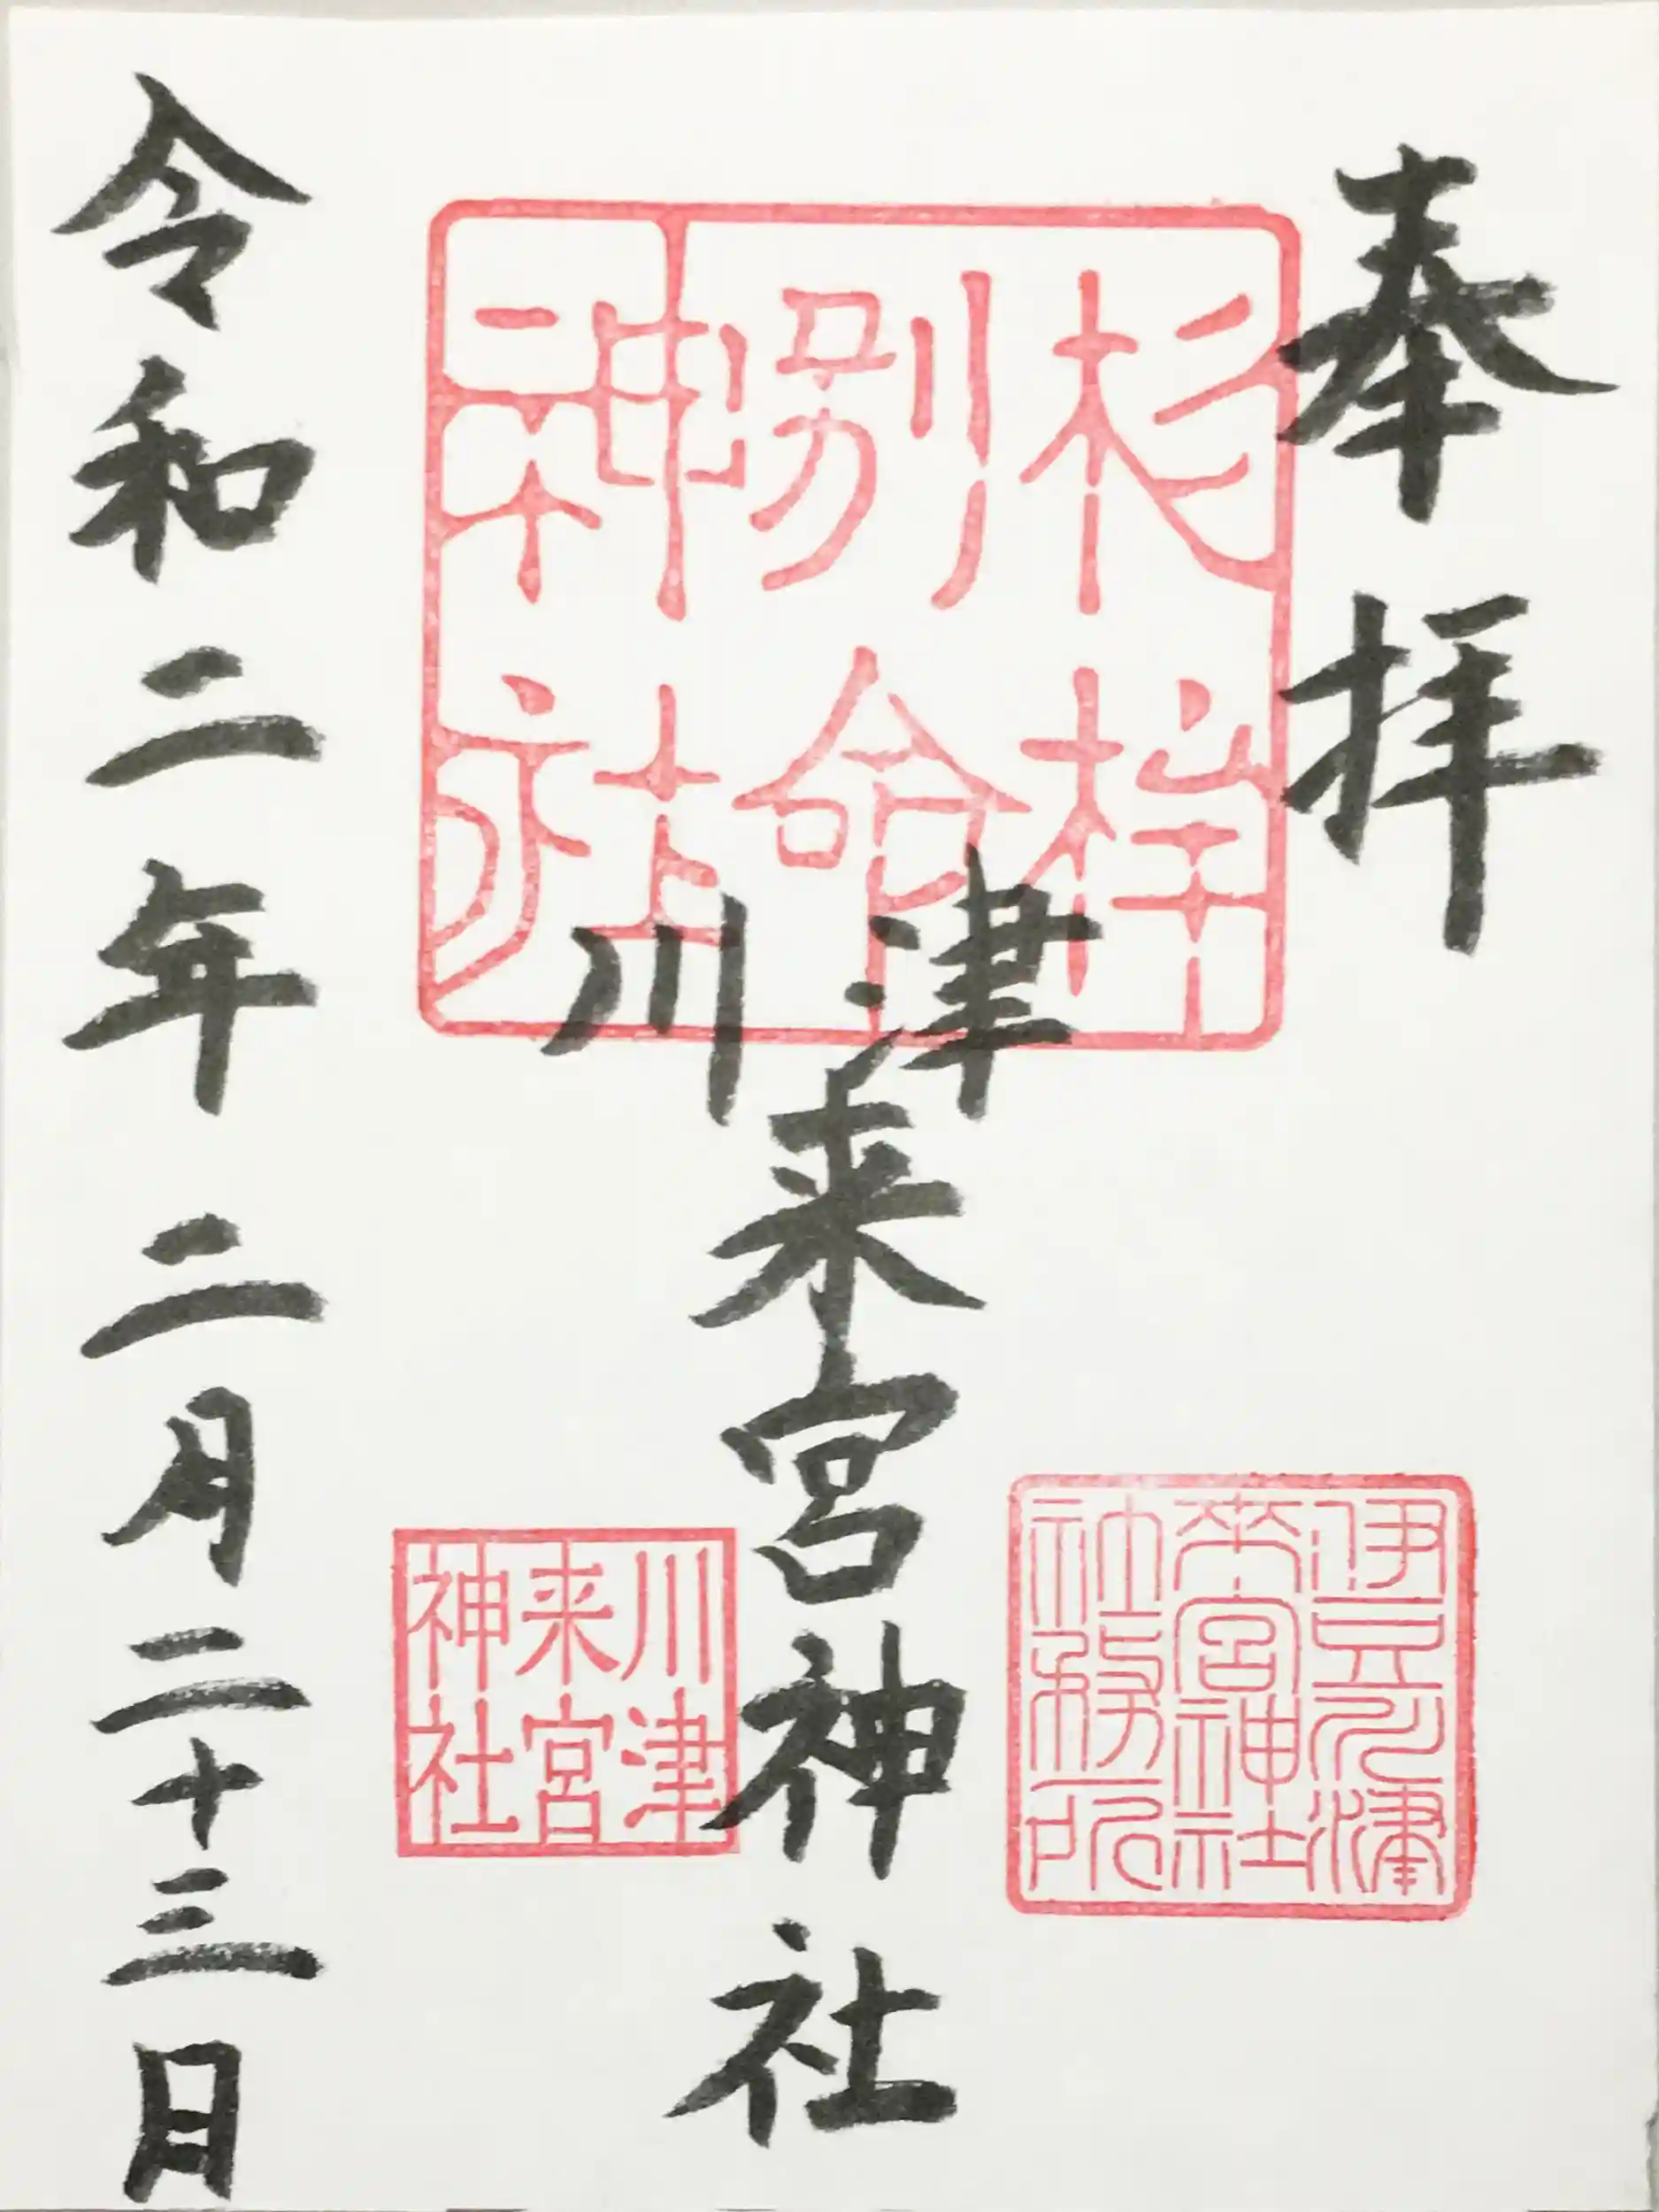 奉拝
杉桙
別命
神社
川津
来宮神社
伊豆川津
来宮神社
社務所
川津
来宮
神社
令和二年二月二十三日